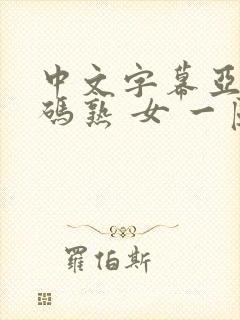 中文字幕亞
碼熟 女 一
羅伯斯